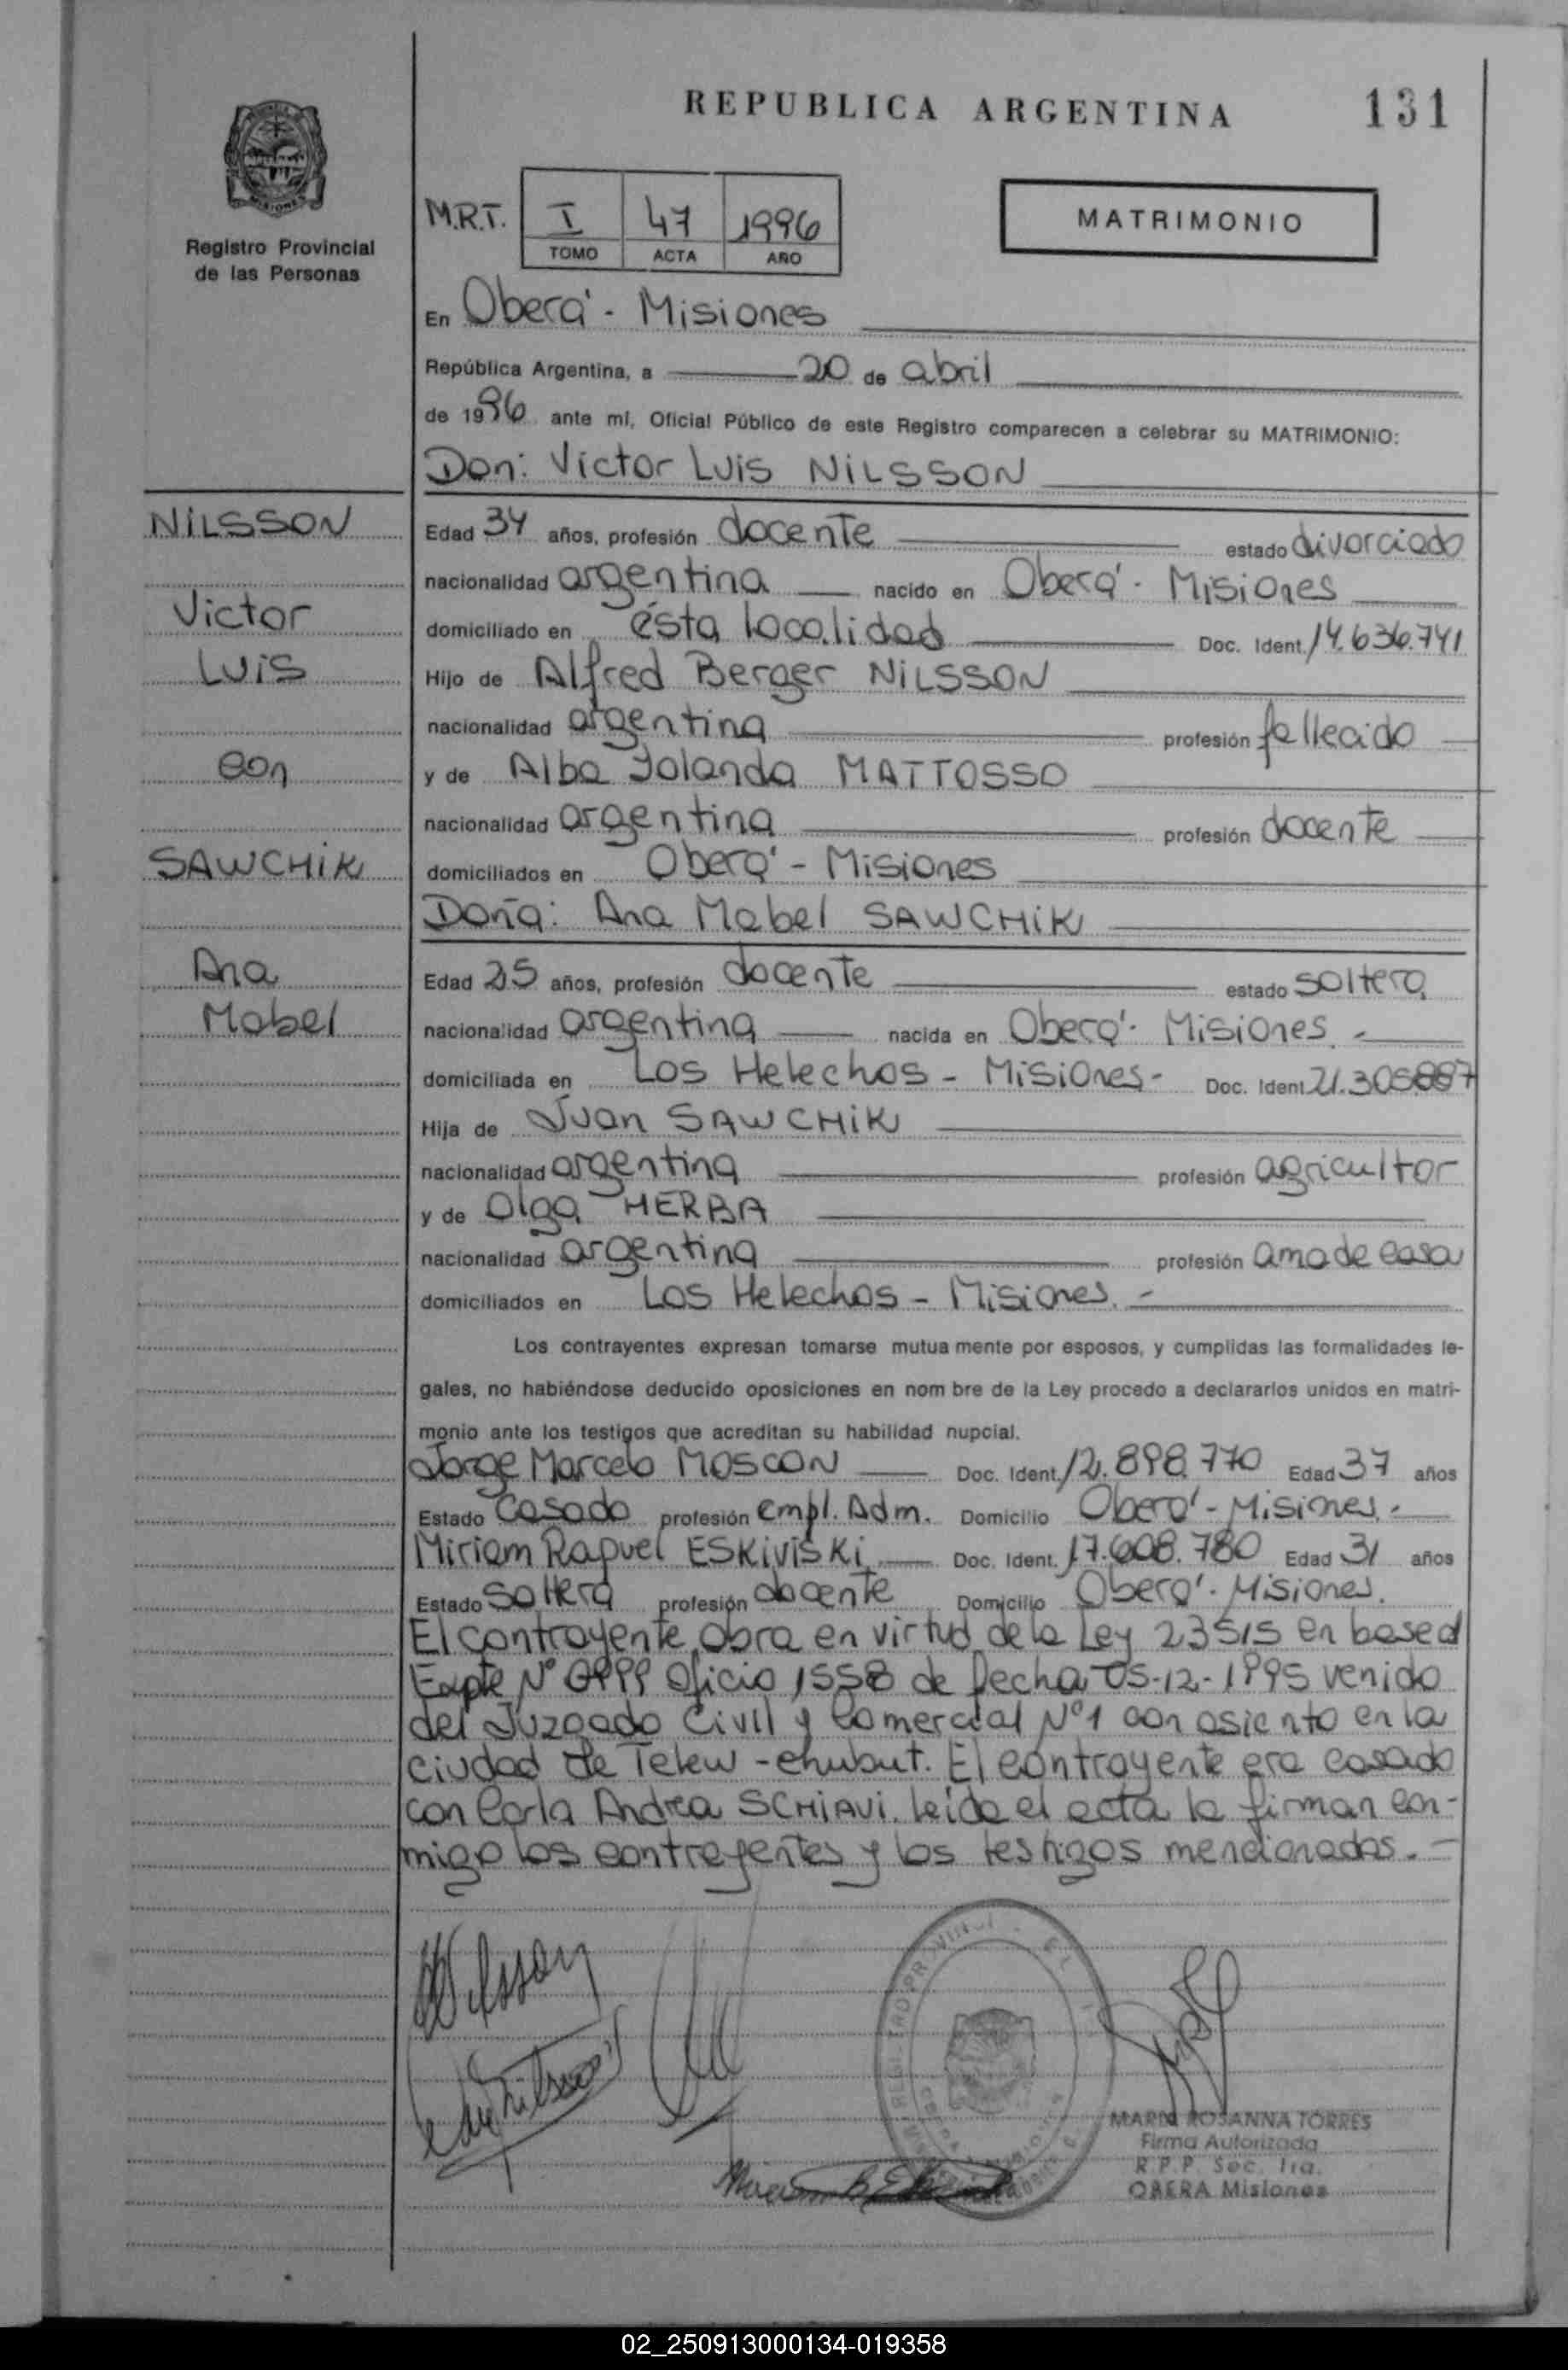 REPUBLICA ARGENTINA
131
Registro Provincial
de las Personas
M.R.T.
I
47
1996
TOMO
ACTA
AÑO
MATRIMONIO
En Oberá - Misiones
República Argentina, a 20 de abril
de 1996 ante mí, Oficial Público de este Registro comparecen a celebrar su MATRIMONIO:
Don: Victor Luis NILSSON
NILSSON
Victor
Luis
con
SAWCHIK
Ana
Mabel
Edad 34 años, profesión docente estado divorciado
nacionalidad argentina nacido en Oberá - Misiones
domiciliado en ésta localidad Doc. Ident. 14.636.741
Hijo de Alfred Berger NILSSON
nacionalidad argentina profesión fallecido
y de Alba Yolanda MATTOSSO
nacionalidad argentina profesión docente
domiciliados en Oberá - Misiones
Doña: Ana Mabel SAWCHIK
Edad 25 años, profesión docente estado soltera
nacionalidad argentina nacida en Oberá - Misiones.-
domiciliada en Los Helechos - Misiones - Doc. Ident
Hija de Juan SAWCHIK
nacionalidad argentina profesión agricultor
y de Olga HERBA
nacionalidad argentina profesión ama de casa
domiciliados en Los Helechos - Misiones.-
Los contrayentes expresan tomarse mutua mente por esposos, y cumplidas las formalidades le-
gales, no habiéndose deducido oposiciones en nom bre de la Ley procedo a declararlos unidos en matri-
monio ante los testigos que acreditan su habilidad nupcial.
Jorge Marcelo MOSCON Doc. Ident. 12.898.770 Edad 37 años
Estado Casado profesión empl. Adm. Domicilio Oberá - Misiones.-
Miriam Raquel ESKIVISKI Doc. Ident. 17.608.780 Edad 31 años
Estado Soltera profesión docente Domicilio Oberá - Misiones.
El contrayente obra en virtud de la Ley 23515 en base al
Expte Nº Oficio 1558 de fecha 05-12-1995 venido
del Juzgado Civil y Comercial Nº1 con asiento en la
ciudad de Telew - Chubut. El contrayente era casado
con Carla Andrea SCHIAVI. Leida el acta la firman con-
migo los contrayentes y los testigos mencionados.-
Nilsson
MARIA ROSANNA TORRES
Firma Autorizada
R.P.P. Sec. 1ra.
OBERA Misiones
02_250913000134-019358